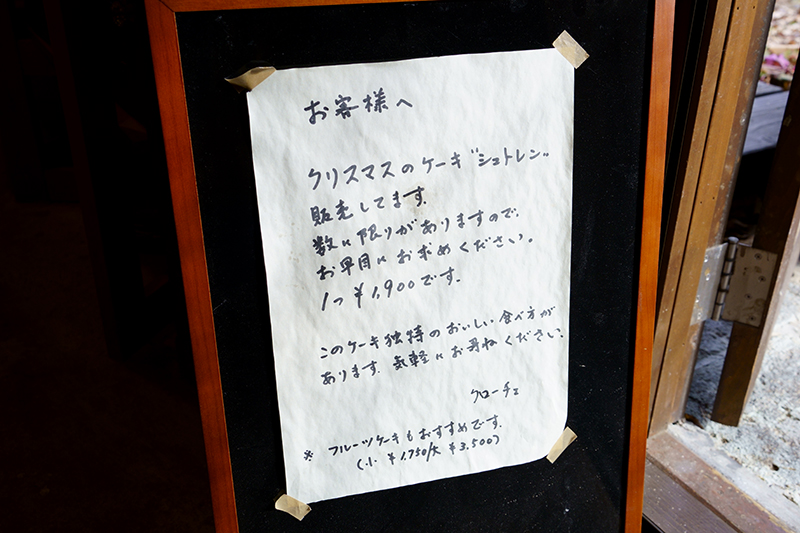 お客様へ
クリスマスのケーキ"シュトレン"
販売してます。
数に限りがありますので、
お早目にお求めください。
1つ¥1,900です。
このケーキ独特のおいしい食べ方が
あります。気軽にお尋ねください。
クローチェ
※ フルーツケーキもおすすめです。
(小¥1,750/大¥3,500)